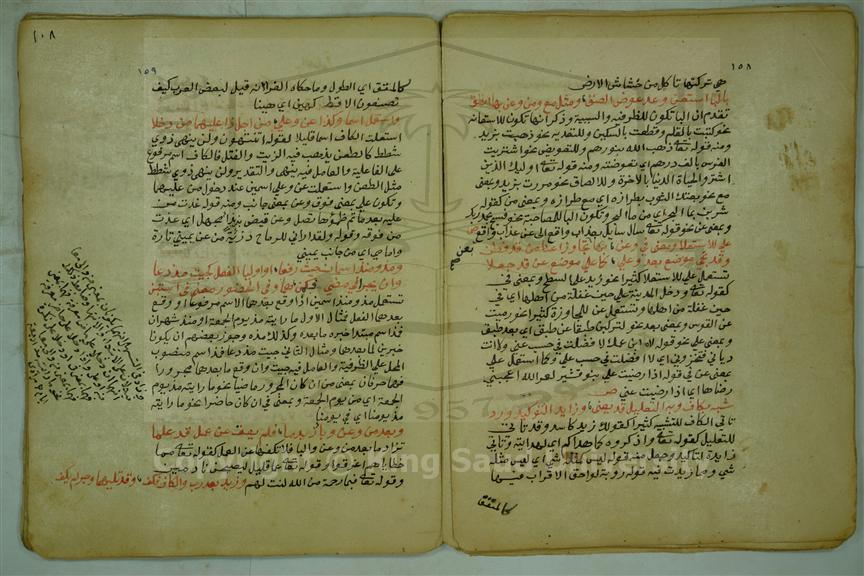 ١٥٨
هي تركتها تاكل من خشاش الارض
بالبا استعن وعد عوض الصق ومثل مع ومن وعن بها انطق
تقدم ان البا تكون للظرفية والسببية وذكر انها تكون للاستعانة
نحو كتبت بالقلم وقطعت بالسكين وللتعدية نحو ذهبت بزيد
ومنه قوله تعالى ذهب الله بنورهم وللتعويض نحو اشتريت
الفرس بالف درهم ومنه قوله تعالى اوليك الذين
اشتروا الحياة الدنيا بالاخرة وللالصاق نحو مررت بزيد وبمعنى
مع نحو بعتك الثوب بطرازه اي مع طرازه وبمعنى من كقوله
شربن بما البحر اي من ما البحر وتكون البا للمصاحبة نحو فسبح بحمد ربك
وبمعنى عن نحو قوله تعالى سال سايل بعذاب واقع اي عن عذاب واقع
على للاستعلا ومعنى في وعن بعن تجاوزا عنا من قد فطن
وقد تجي موضع بعد وعلى كما على موضع عن قد جعلا
تستعمل على للاستعلا كثيرا نحو زيد على السطح وبمعنى في
كقوله تعالى ودخل المدينة على حين غفلة من اهلها اي في
حين غفلة من اهلها وتستعمل عن للمجاوزة كثيرا نحو رميت
عن القوس وبمعنى بعد نحو لتركبن طبقا عن طبق اي بعد طبق
وبمعنى على نحو قوله لاه ابن عمك لا افضلت في حسب عني ولا انت
دياني فتخزوني اي لا افضلت في حسب علي وكما استعمل على
بمعنى عن في قوله اذا رضيت علي بنو قشير لعمر الله اعجبني
رضاها اي اذا رضيت عني
شبه بكاف وبه التعليل قد يعنى وزايد التوكيد ورد
تاتي الكاف للتشبيه كثيرا كقولك زيد كالاسد وقد تاتي
للتعليل كقوله تعالى واذكروه كما هداكم اي لهدايته وتاتي
زايدة للتاكيد وجعل منه قوله ليس كمثله شي اي ليس مثله
شي ومما زيدت فيه قوله رؤبة لواحق الاقراب فيها
كالمقق
١٠٨
١٥٩
كالمقق اي الطول وما حكاه الفرا انه قيل لبعض العرب كيف
تصنعون الاقط كهين اي هينا
واستعمل اسما وكذا عن وعلى من اجل ذا عليهما من دخلا
استعملت الكاف اسما قليلا كقوله اتنتهون ولن ينهى ذوي
شطط كالطعن يذهب فيه الزيت والفتل فالكاف اسم مرفوع
على الفاعلية والعامل فيه ينهى والتقدير ولن ينهى ذوي شطط
مثل الطعن واستعملت عن وعلى اسمين عند دخول من عليهما
وتكون على بمعنى فوق وعن بمعنى جانب ومنه قوله غدت من
عليه بعد ما تم ظمؤها تصل وعن قيض بزيزا مجهل اي غدت
من فوقه وقوله ولقد اراني للرماح دريئة من عن يميني تارة
وامامي اي من جانب يميني
ومذ ومنذ اسمان حيث رفعا او اوليا الفعل كجيت مذ دعا
وان يجرا في مضي فكمن هما وفي الحضور معنى في استبن
تستعمل مذ ومنذ اسمين اذا وقع بعدهما الاسم مرفوعا او وقع
بعدهما الفعل فمثال الاول ما رايته مذ يوم الجمعة او منذ شهران
فمذ اسم مبتدا خبره ما بعده وكذلك منذ وجوز بعضهم ان يكونا
خبرين لما بعدهما ومثال الثاني جيت مذ دعا فمذ اسم منصوب
المحل على الظرفية والعامل فيه جيت وان وقع ما بعدهما مجرورا
فهما حرفان بمعنى من ان كان المجرور ماضيا نحو ما رايته مذ يوم
الجمعة اي من يوم الجمعة وبمعنى في ان كان حاضرا نحو ما رايته
مذ يومنا اي في يومنا
وبعد من وعن وبا زيد ما فلم يعق عن عمل قد علما
تزاد ما بعد من وعن والبا فلا تكفها عن العمل كقوله تعالى مما
خطاياهم اغرقوا وقوله تعالى عما قليل ليصبحن نادمين
وقوله تعالى فبما رحمة من الله لنت لهم وزيد بعد رب والكاف فكف وقد تليهما وجر لم يكف